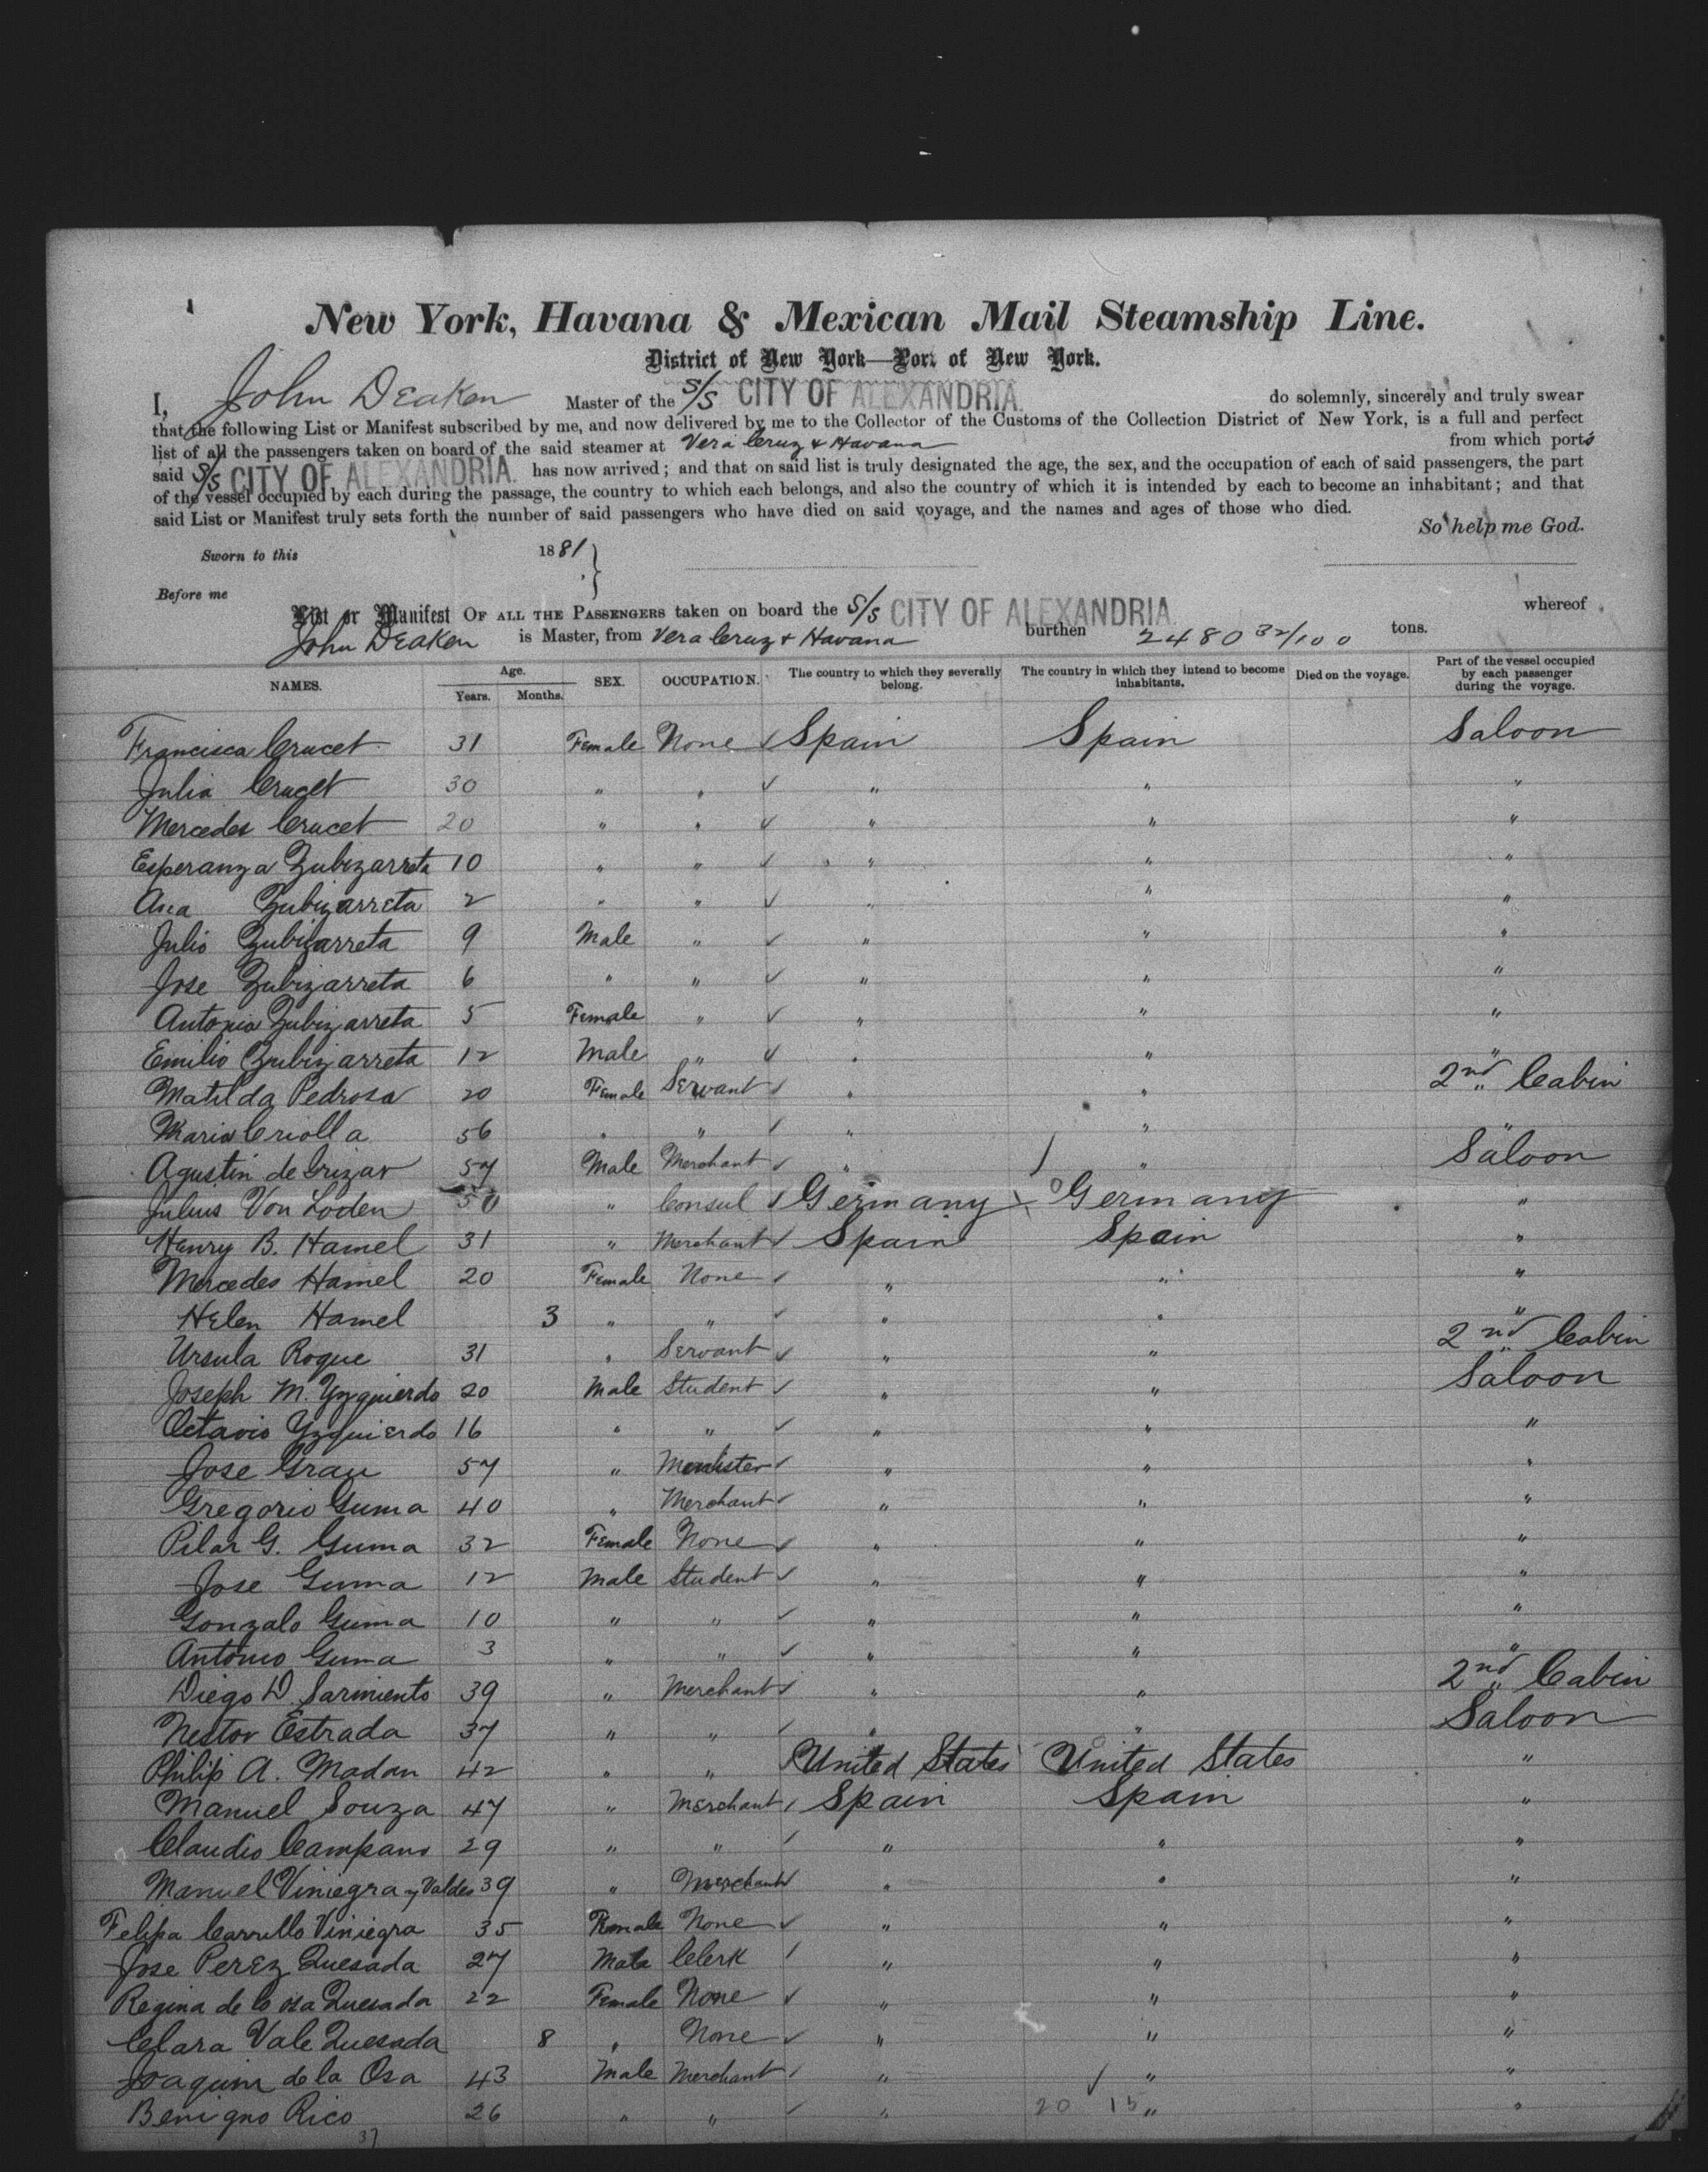 New York, Havana & Mexican Mail Steamship Line.
District of New York—Port of New York.
I, John Deaken Master of the S/S CITY OF ALEXANDRIA. do solemnly, sincerely and truly swear
that the following List or Manifest subscribed by me, and now delivered by me to the Collector of the Customs of the Collection District of New York, is a full and perfect
list of all the passengers taken on board of the said steamer at Vera Cruz & Havana from which ports
said S/S CITY OF ALEXANDRIA. has now arrived; and that on said list is truly designated the age, the sex, and the occupation of each of said passengers, the part
of the vessel occupied by each during the passage, the country to which each belongs, and also the country of which it is intended by each to become an inhabitant; and that
said List or Manifest truly sets forth the number of said passengers who have died on said voyage, and the names and ages of those who died.
So help me God.
Sworn to this 1881
Before me
List or Manifest OF ALL THE PASSENGERS taken on board the S/S CITY OF ALEXANDRIA whereof
John Deaken is Master, from Vera Cruz & Havana burthen 2480 32/100 tons.
NAMES. Age. Years. Months. SEX. OCCUPATION. The country to which they severally belong. The country in which they intend to become inhabitants. Died on the voyage. Part of the vessel occupied by each passenger during the voyage.
Francisca Crucet 31 Female None ✓ Spain Spain Saloon
Julia Crucet 30 " " ✓ " " "
Mercedes Crucet 20 " " ✓ " " "
Esperanza Zubizarreta 10 " " ✓ " " "
Ana Zubizarreta 2 " " ✓ " " "
Julio Zubizarreta 9 Male " ✓ " " "
Jose Zubizarreta 6 " " ✓ " " "
Antonia Zubizarreta 5 Female " ✓ " " "
Emilio Zubizarreta 12 Male " ✓ " " "
Matilda Pedrosa 20 Female Servant ✓ " " 2nd Cabin
Maria Criolla 56 " " ✓ " " "
Agustin de Irizar 57 Male Merchant ✓ " " Saloon
Julius Von Loden 50 " Consul ✓ Germany Germany "
Henry B. Hamel 31 " Merchant ✓ Spain Spain "
Mercedes Hamel 20 Female None ✓ " " "
Helen Hamel 3 " " ✓ " " "
Ursula Roque 31 " Servant ✓ " " 2nd Cabin
Joseph M. Yzquierdo 20 Male Student ✓ " " Saloon
Octavio Yzquierdo 16 " " ✓ " " "
Jose Grau 57 " Minister ✓ " " "
Gregorio Guma 40 " Merchant ✓ " " "
Pilar G. Guma 32 Female None ✓ " " "
Jose Guma 12 Male Student ✓ " " "
Gonzalo Guma 10 " " ✓ " " "
Antonio Guma 3 " " ✓ " " "
Diego D. Sarmiento 39 " Merchant ✓ " " 2nd Cabin
Nestor Estrada 37 " " ✓ " " Saloon
Philip A. Madan 42 " " ✓ United States United States "
Manuel Souza 47 " Merchant ✓ Spain Spain "
Claudio Campano 29 " " ✓ " " "
Manuel Viniegra y Valdes 39 " Merchant ✓ " " "
Felipa Carrillo Viniegra 35 Female None ✓ " " "
Jose Perez Quesada 27 Male Clerk ✓ " " "
Regina de la osa Quesada 22 Female None ✓ " " "
Clara Vale Quesada 8 " None ✓ " " "
Joaquim de la Osa 43 Male Merchant ✓ " ✓ " "
Benigno Rico 26 " " ✓ " 20 15 " "
37